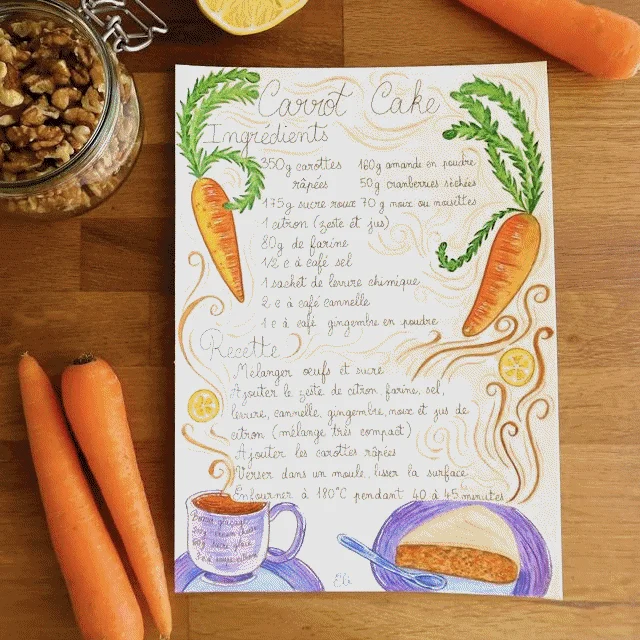 Carrot Cake
Ingrédients
350g carottes râpées
160g amande en poudre
50g cranberries séchées
175g sucre roux 70g noix ou noisettes
1 citron (zeste et jus)
80g de farine
1/2 c à café sel
1 sachet de levure chimique
2 c à café cannelle
1 c à café gingembre en poudre
Recette
Mélanger oeufs et sucre
Ajouter le zeste de citron, farine, sel,
levure, cannelle, gingembre, noix et jus de
citron (mélange très compact)
Ajouter les carottes râpées
Verser dans un moule, lisser la surface
Enfourner à 180°C pendant 40 à 45 minutes